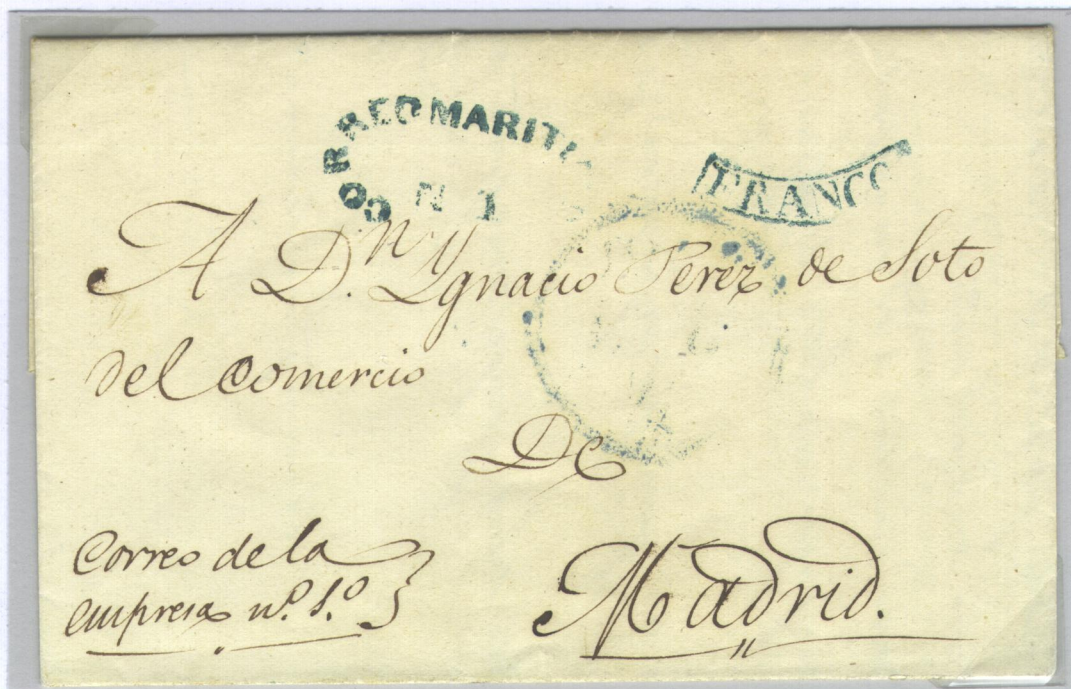 CORREO MARITI
N 1
FRANCO
A D.n Ygnacio Perez de Soto
del Comercio
De
Madrid.
Correo de la
empresa n.º 1.º